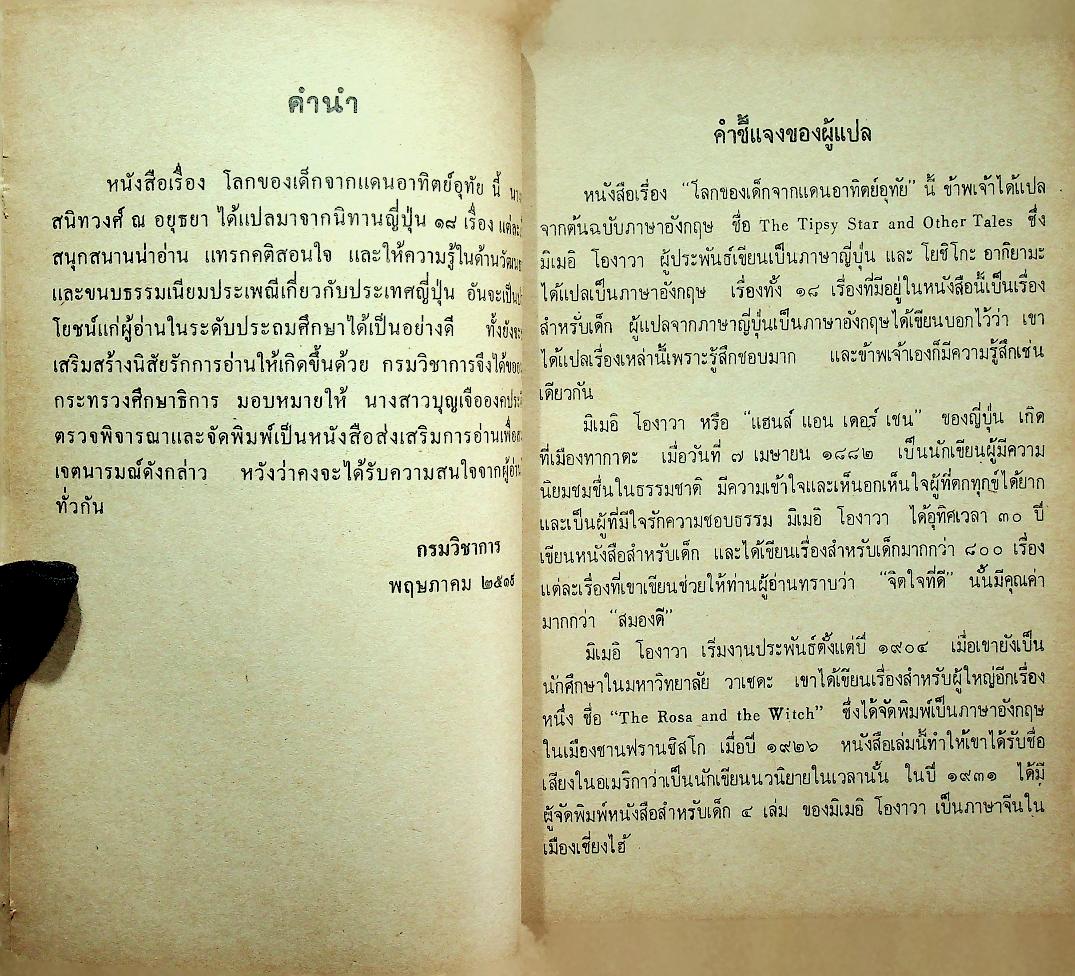 คำนำ
หนังสือเรื่อง โลกของเด็กจากแดนอาทิตย์อุทัย นี้
สนิทวงศ์ ณ อยุธยา ได้แปลมาจากนิทานญี่ปุ่น ๑๘ เรื่อง
สนุกสนานน่าอ่าน แทรกคติสอนใจ และให้ความรู้ในด้าน
และขนบธรรมเนียมประเพณีเกี่ยวกับประเทศญี่ปุ่น อันจะเป็น
โยชน์แก่ผู้อ่านในระดับประถมศึกษาได้เป็นอย่างดี
เสริมสร้างนิสัยรักการอ่านให้เกิดขึ้นด้วย กรมวิชาการจึงได้
กระทรวงศึกษาธิการ มอบหมายให้ นางสาวบุญเจือ
ตรวจพิจารณาและจัดพิมพ์เป็นหนังสือส่งเสริมการอ่าน
เจตนารมณ์ดังกล่าว หวังว่าคงจะได้รับความสนใจจาก
ทั่วกัน
กรมวิชาการ
พฤษภาคม
คำชี้แจงของผู้แปล
หนังสือเรื่อง “โลกของเด็กจากแดนอาทิตย์อุทัย” นี้ ข้าพเจ้าได้แปล
จากต้นฉบับภาษาอังกฤษ ชื่อ The Tipsy Star and Other Tales ซึ่ง
มิเมอิ โองาวา ผู้ประพันธ์เขียนเป็นภาษาญี่ปุ่น และ โยชิโกะ อากิยามะ
ได้แปลเป็นภาษาอังกฤษ เรื่องทั้ง ๑๘ เรื่องที่มีอยู่ในหนังสือนี้เป็นเรื่อง
สำหรับเด็ก ผู้แปลจากภาษาญี่ปุ่นเป็นภาษาอังกฤษได้เขียนบอกไว้ว่า เขา
ได้แปลเรื่องเหล่านี้เพราะรู้สึกชอบมาก และข้าพเจ้าเองก็มีความรู้สึกเช่น
เดียวกัน
มิเมอิ โองาวา หรือ “แฮนส์ แอน เดอร์ เซน” ของญี่ปุ่น เกิด
ที่เมืองทากาตะ เมื่อวันที่ ๗ เมษายน ๑๘๘๒ เป็นนักเขียนผู้มีความ
นิยมชมชื่นในธรรมชาติ มีความเข้าใจและเห็นอกเห็นใจผู้ที่ตกทุกข์ได้ยาก
และเป็นผู้ที่มีใจรักความชอบธรรม มิเมอิ โองาวา ได้อุทิศเวลา ๓๐ ปี
เขียนหนังสือสำหรับเด็ก และได้เขียนเรื่องสำหรับเด็กมากกว่า ๘๐๐ เรื่อง
แต่ละเรื่องที่เขาเขียนช่วยให้ท่านผู้อ่านทราบว่า “จิตใจที่ดี” นั้นมีคุณค่า
มากกว่า “สมองดี”
มิเมอิ โองาวา เริ่มงานประพันธ์ตั้งแต่ปี ๑๙๐๔ เมื่อเขายังเป็น
นักศึกษาในมหาวิทยาลัย วาเซดะ เขาได้เขียนเรื่องสำหรับผู้ใหญ่อีกเรื่อง
หนึ่ง ชื่อ “The Rosa and the Witch” ซึ่งได้จัดพิมพ์เป็นภาษาอังกฤษ
ในเมืองซานฟรานซิสโก เมื่อปี ๑๙๒๖ หนังสือเล่มนี้ทำให้เขาได้รับชื่อ
เสียงในอเมริกาว่าเป็นนักเขียนนวนิยายในเวลานั้น ในปี ๑๙๓๑ ได้มี
ผู้จัดพิมพ์หนังสือสำหรับเด็ก ๔ เล่ม ของมิเมอิ โองาวา เป็นภาษาจีนใน
เมืองเซี่ยงไฮ้